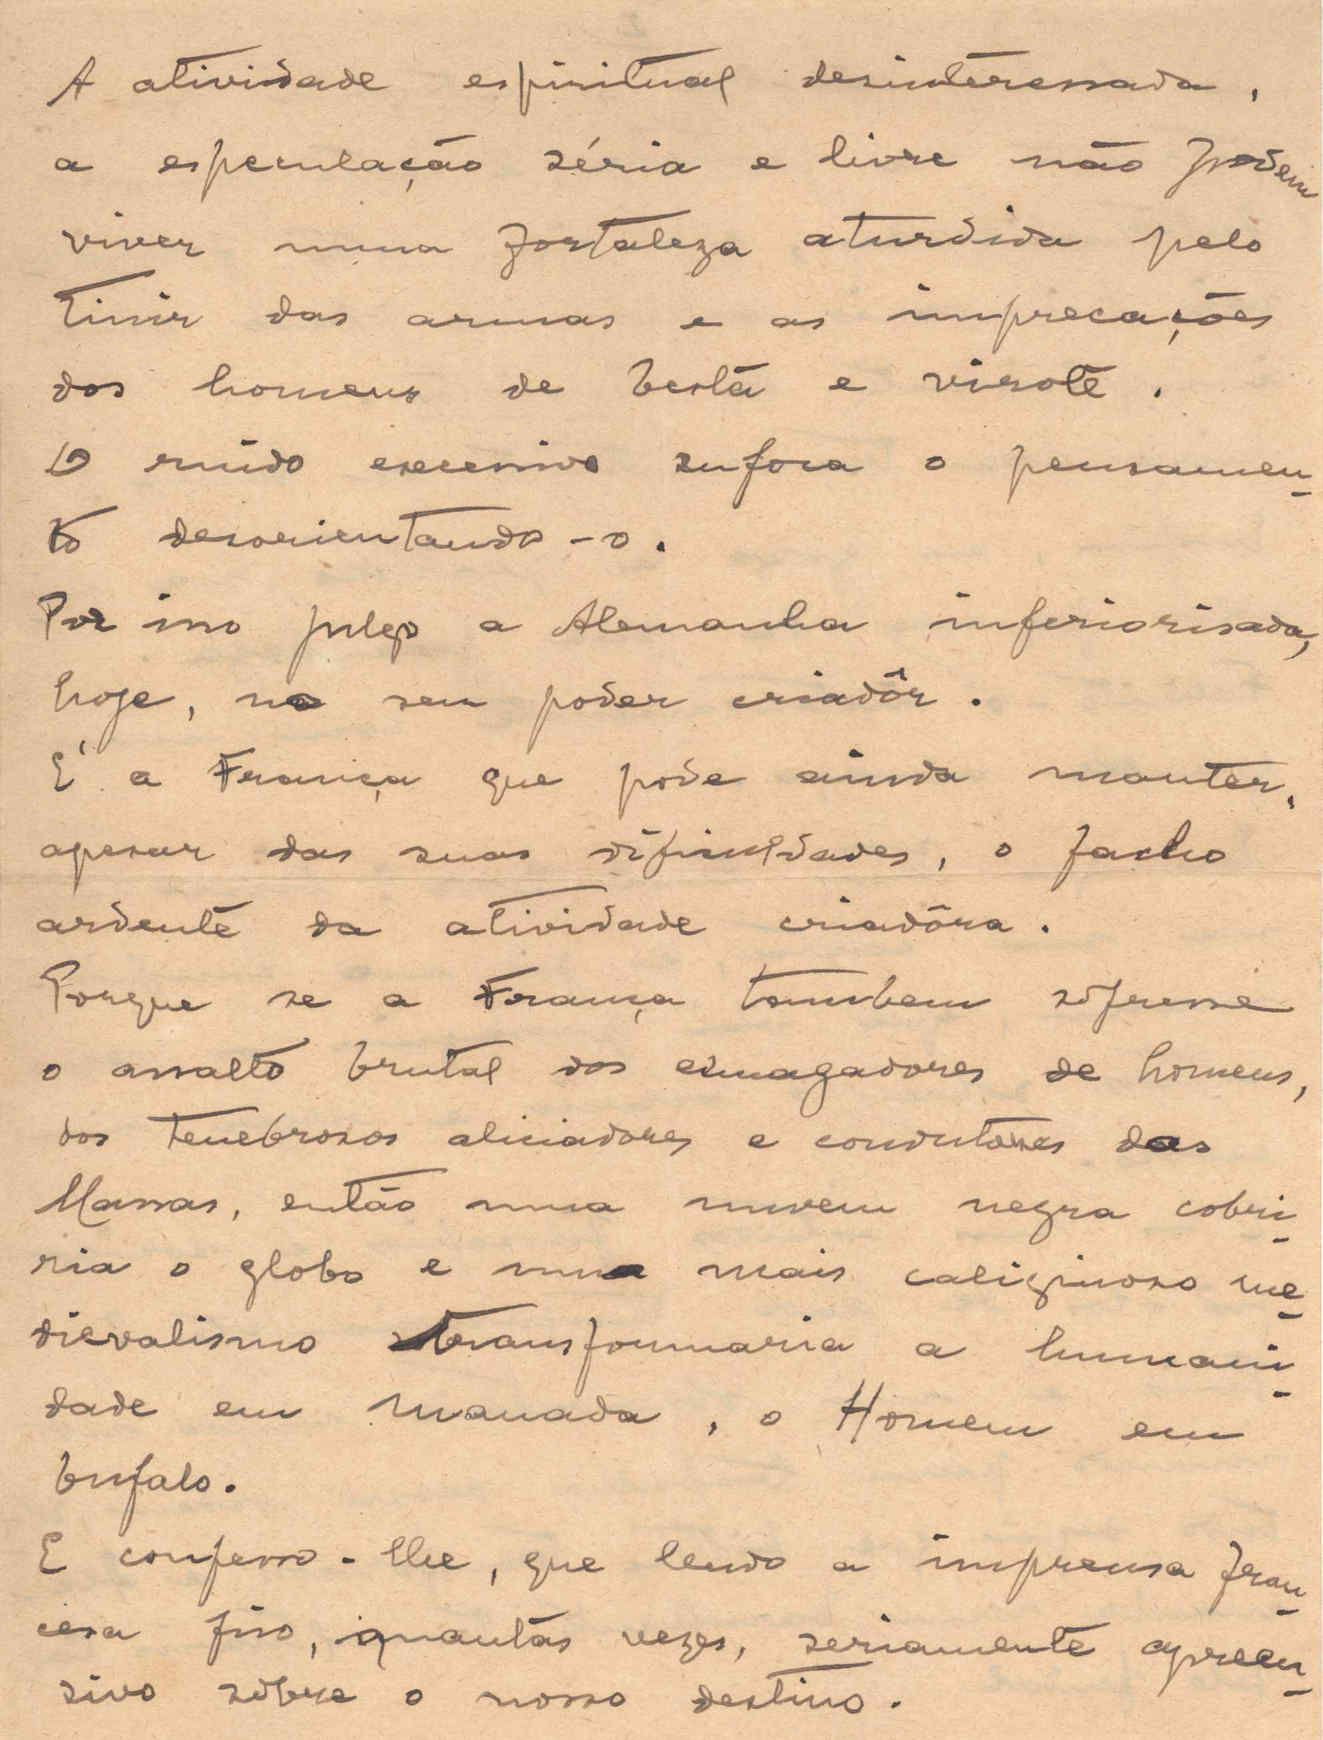 A atividade espiritual desinteressada,
a especulação séria e livre não podem
viver numa fortaleza aturdida pelo
tinir das armas e as imprecações
dos homens de bésta e virote.
O ruido excessivo sufoca o pensamen-
to desorientando-o.
Por isso julgo a Alemanha inferiorisada,
hoje, no seu poder criadôr.
E' a França que pode ainda manter,
apesar das suas dificuldades, o facho
ardente da atividade criadôra.
Porque se a França tambem sofresse
o assalto brutal dos esmagadores de homens,
dos tenebrosos aliciadores e condutores das
Massas, então uma nuvem negra cobri-
ria o globo e um mais caliginoso me-
dievalismo transformaria a humani-
dade em manada, o Homem em
bufalo.
E confesso-lhe, que lendo a imprensa fran-
cesa fico, quantas vezes, seriamente apreen-
sivo sôbre o nosso destino.